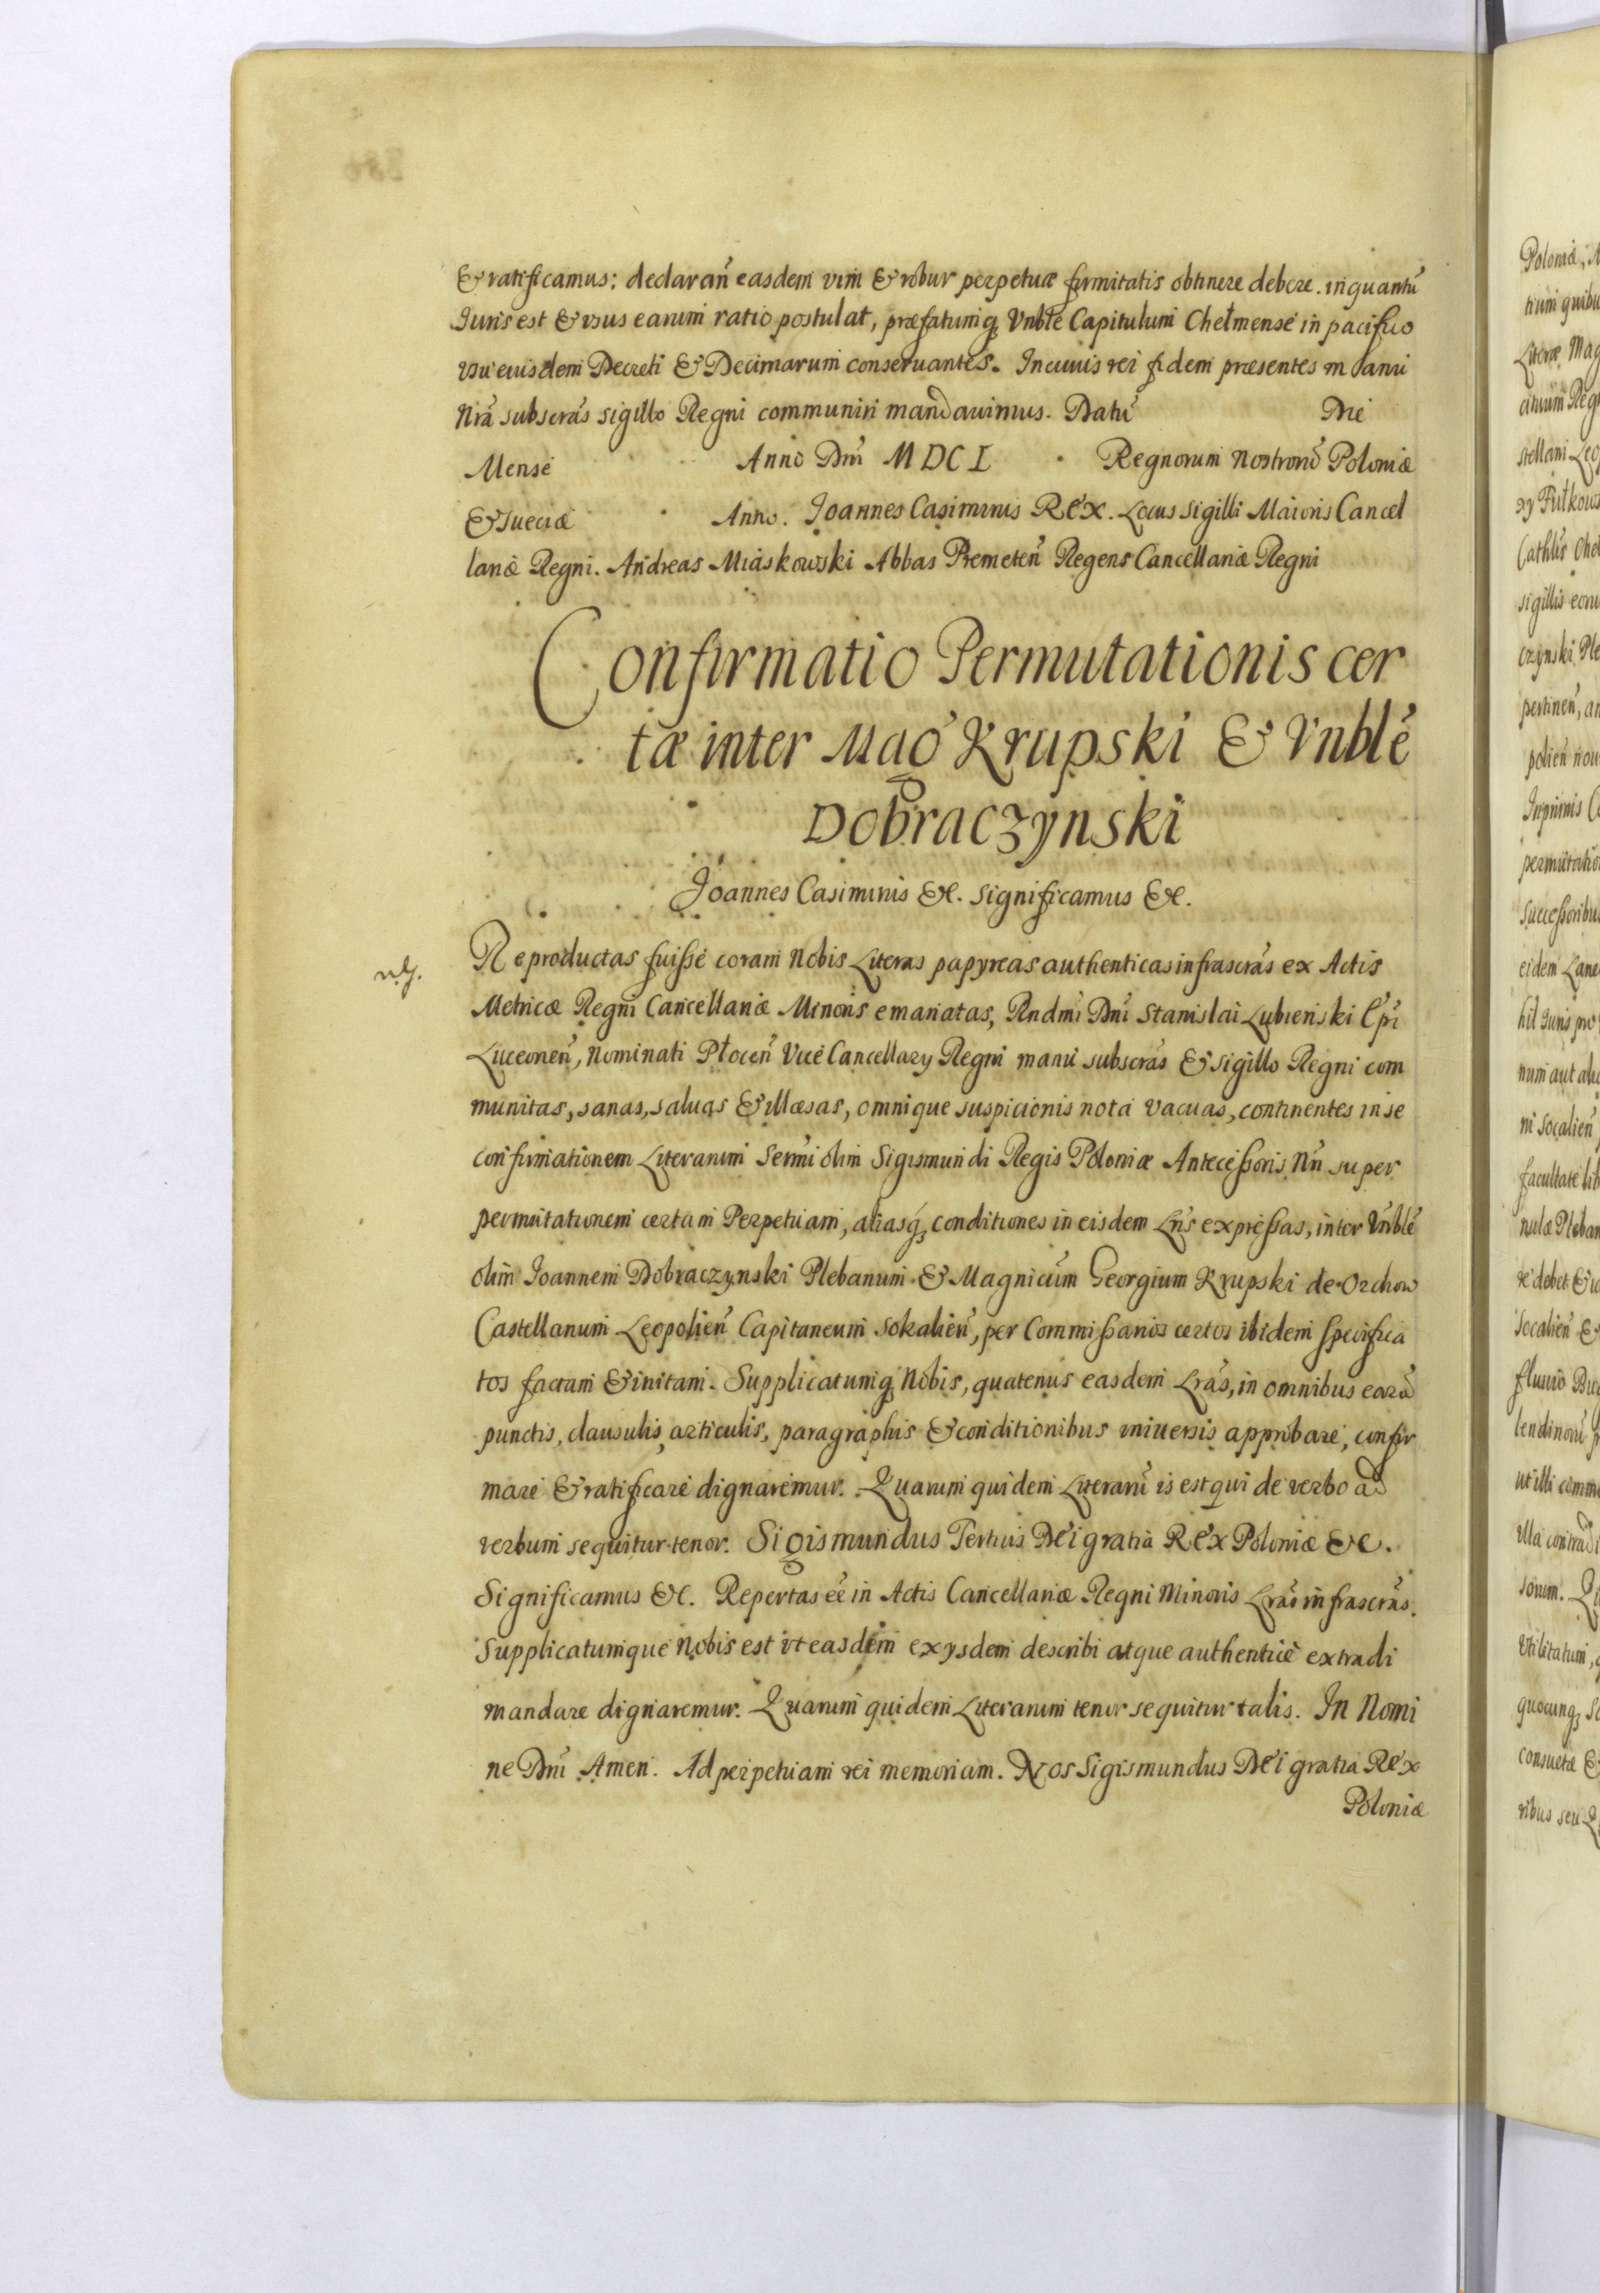 & ratificamus: declarañ easdem vim & robur perpetuæ firmitatis obtinere debere. inquantũ
Iuris est & usus earum ratio postulat, præfatumq̃ Vnble Capitulum Chełmense in pacifico
vsu eiusdem Decreti & Decimarum conseruantes. In cuius rei fidem præsentes manu
Nrã subscrãs sigillo Regni communiri mandauimus. Datũ Die
Mense Anno Dni MDCI Regnorum Nostrorũ Poloniæ
& Sueciæ Anno. Joannes Casimirus Rex. Locus Sigilli Maioris Cancel
lariæ Regni. Andreas Miaskowski Abbas Premeteñ Regens Cancellariæ Regni
Confirmatio Permutationis cer
tæ inter Mag̃ Krupski & Vnblẽ
Dobraczynski
Joannes Casimirus &c. Significamus &c.
Reproductas fuisse coram Nobis Literas papyreas authenticas infrascrãs ex Actis
Metricæ Regni Cancellariæ Minoris emanatas, Rndmi Dni Stanislai Lubienski Epi
Luceoneñ, Nominati Płoceñ Vice Cancellary Regni manu subscrãs & sigillo Regni com
munitas, sanas, saluas & illæsas, omnique suspicionis nota vacuas, continentes in se
confirmationem Literarum Sermi olim Sigismundi Regis Poloniæ Antecessoris Nri super
permutationem certam Perpetuam, aliasq̃ conditiones in eisdem Lris expressas, inter Vnblẽ
olim Joannem Dobraczynski Plebanum & Magnicum Georgium Krupski de Orchow
Castellanum Leopolieñ Capitaneum Sokalieñ, per Commissarios certos ibidem specifica
tos factam & initam. Supplicatumq̃ Nobis, quatenus easdem Lrãs, in omnibus earũ
punctis, clausulis, articulis, paragraphis & conditionibus vniuersis approbare, confir
mare & ratificare dignaremur. Quarum quidem Literarũ is est qui de verbo ad
verbum sequitur tenor. Sigismundus Tertius Dei gratia Rex Poloniæ &c.
Significamus &c. Repertas ẽe in Actis Cancellariæ Regni Minoris Lrãs infrascrãs.
Supplicatumque Nobis est vt easdem exysdem describi atque authenticè extradi
mandare dignaremur. Quarum quidem Literarum tenor sequitur talis. In Nomi
ne Dni Amen. Ad perpetuam rei memoriam. Nos Sigismundus Dei gratia Rex
Poloniæ